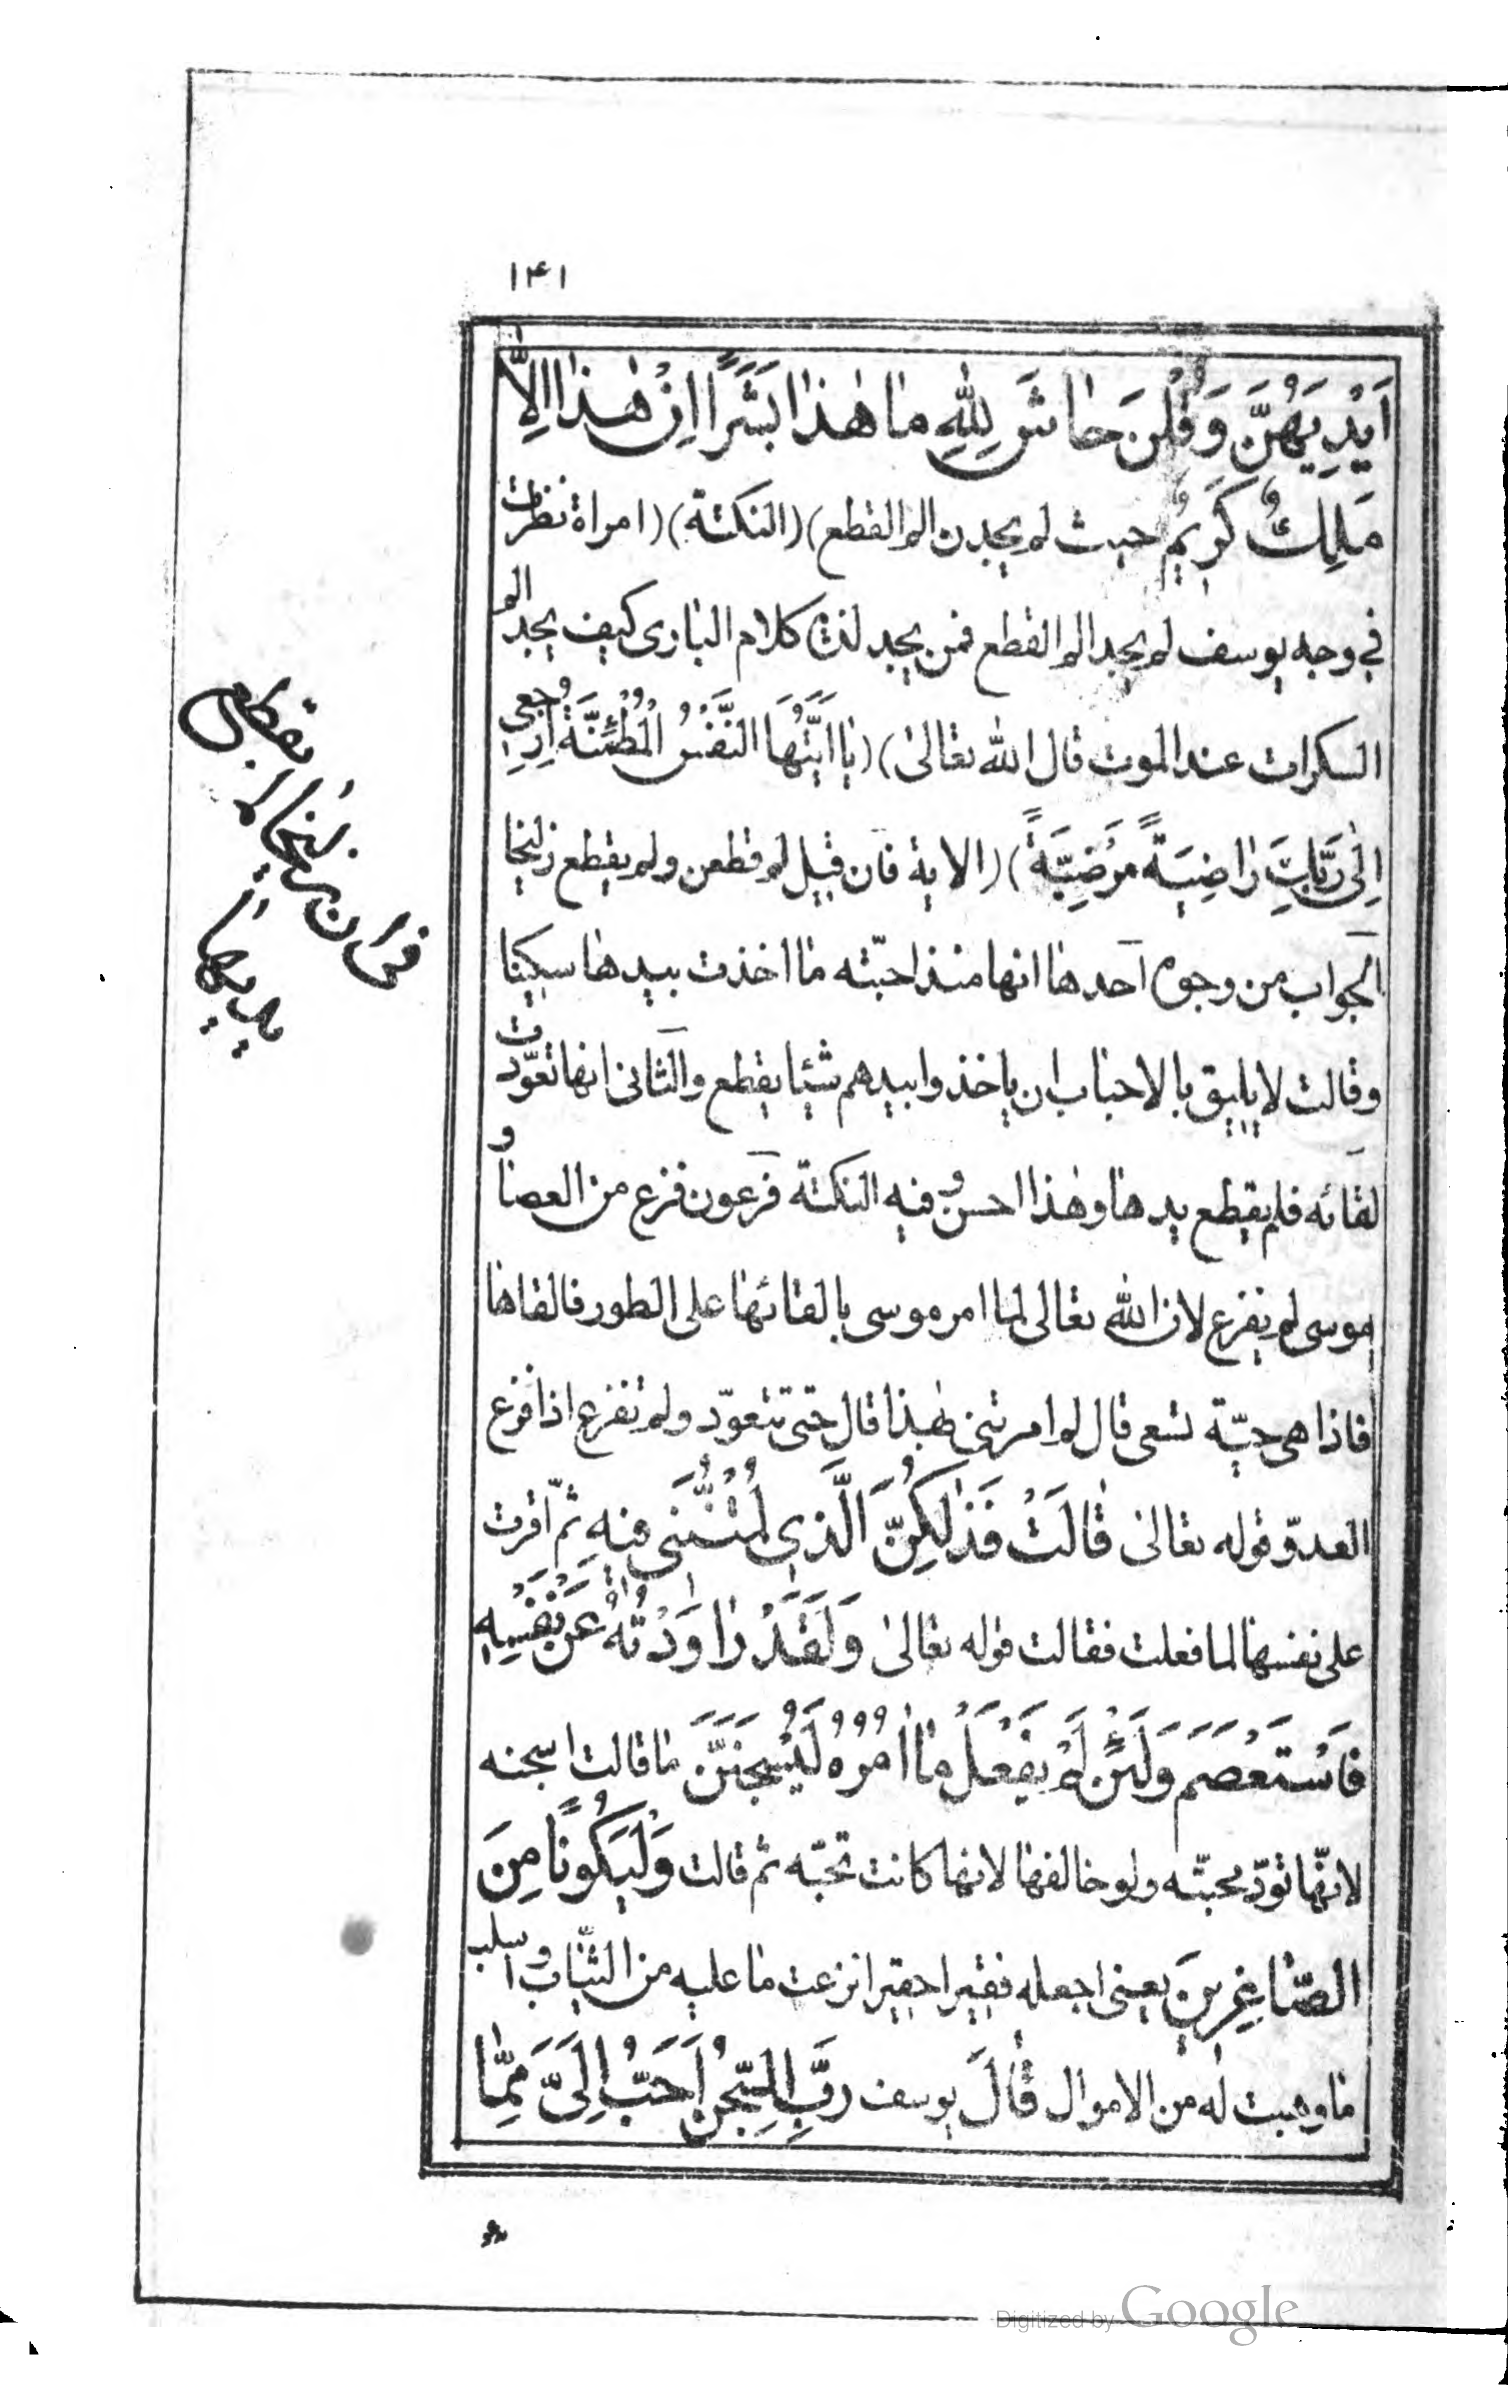 ۱۴۱
اَيْدِيَهُنَّ وَقُلْنَ حَاشَ لِلّٰهِ مَا هٰذَا بَشَرًا اِنْ هٰذَا اِلَّا
مَلِكٌ كَرِيمٌ حيث لم يجدن الم القطع) (النكتة) (امراة نظرت
في وجه يوسف لم يجد الم القطع فمن يجد لذة كلام البارى كيف يجد الم
السكرات عند الموت قال الله تعالى) (يَا اَيَّتُهَا النَّفْسُ الْمُطْمَئِنَّةُ اِرْجِعِى
اِلٰى رَبِّكِ رَاضِيَةً مَرْضِيَّةً) (الاية فان قيل لم قطعن ولم يقطع زليخا
الجواب من وجوه احدها انها منذ احبّته ما اخذت بيدها سكينا
وقالت لا يليق بالاحباب ان ياخذوا بيدهم شيئا يقطع والثانى انها تعوّدت
لقائه فلم يقطع يدها وهذا احسن وفيه النكتة فرعون فزع من العصا و
موسى لم يفزع لان الله تعالى لما امر موسى بالقائها على الطور فالقاها
فاذا هى حيّة تسعى قال لم امرتنى بهذا قال حتى تتعوّد ولم تفزع اذا فزع
العدوّ قوله تعالى قَالَتْ فَذٰلِكُنَّ الَّذِى لُمْتُنَّنِى فِيهِ ثمّ اقرت
على نفسها لما فعلت فقالت قوله تعالى وَلَقَدْ رَاوَدْتُهُ عَنْ نَفْسِهِ
فَاسْتَعْصَمَ وَلَئِنْ لَمْ يَفْعَلْ مَا اٰمُرُهُ لَيُسْجَنَنَّ ما قالت اسجنه
لانّها تودّ محبّته ولو خالفها لانها كانت تحبّه ثم قالت وَلَيَكُونًا مِنَ
الصَّاغِرِينَ يعينى اجعله فقيرا حقيرا نزعت ما عليه من الثياب و اسلب
ما وهبت له من الاموال قَالَ يوسف رَبِّ السِّجْنُ اَحَبُّ اِلَىَّ مِمَّا
يدیها
Digitized by Google